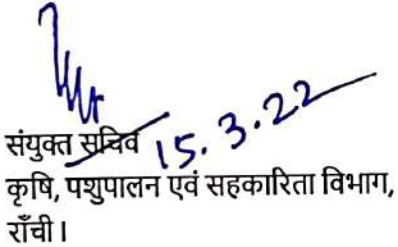 संयुक्त सचिव
15.3.22
कृषि, पशुपालन एवं सहकारिता विभाग,
राँची।